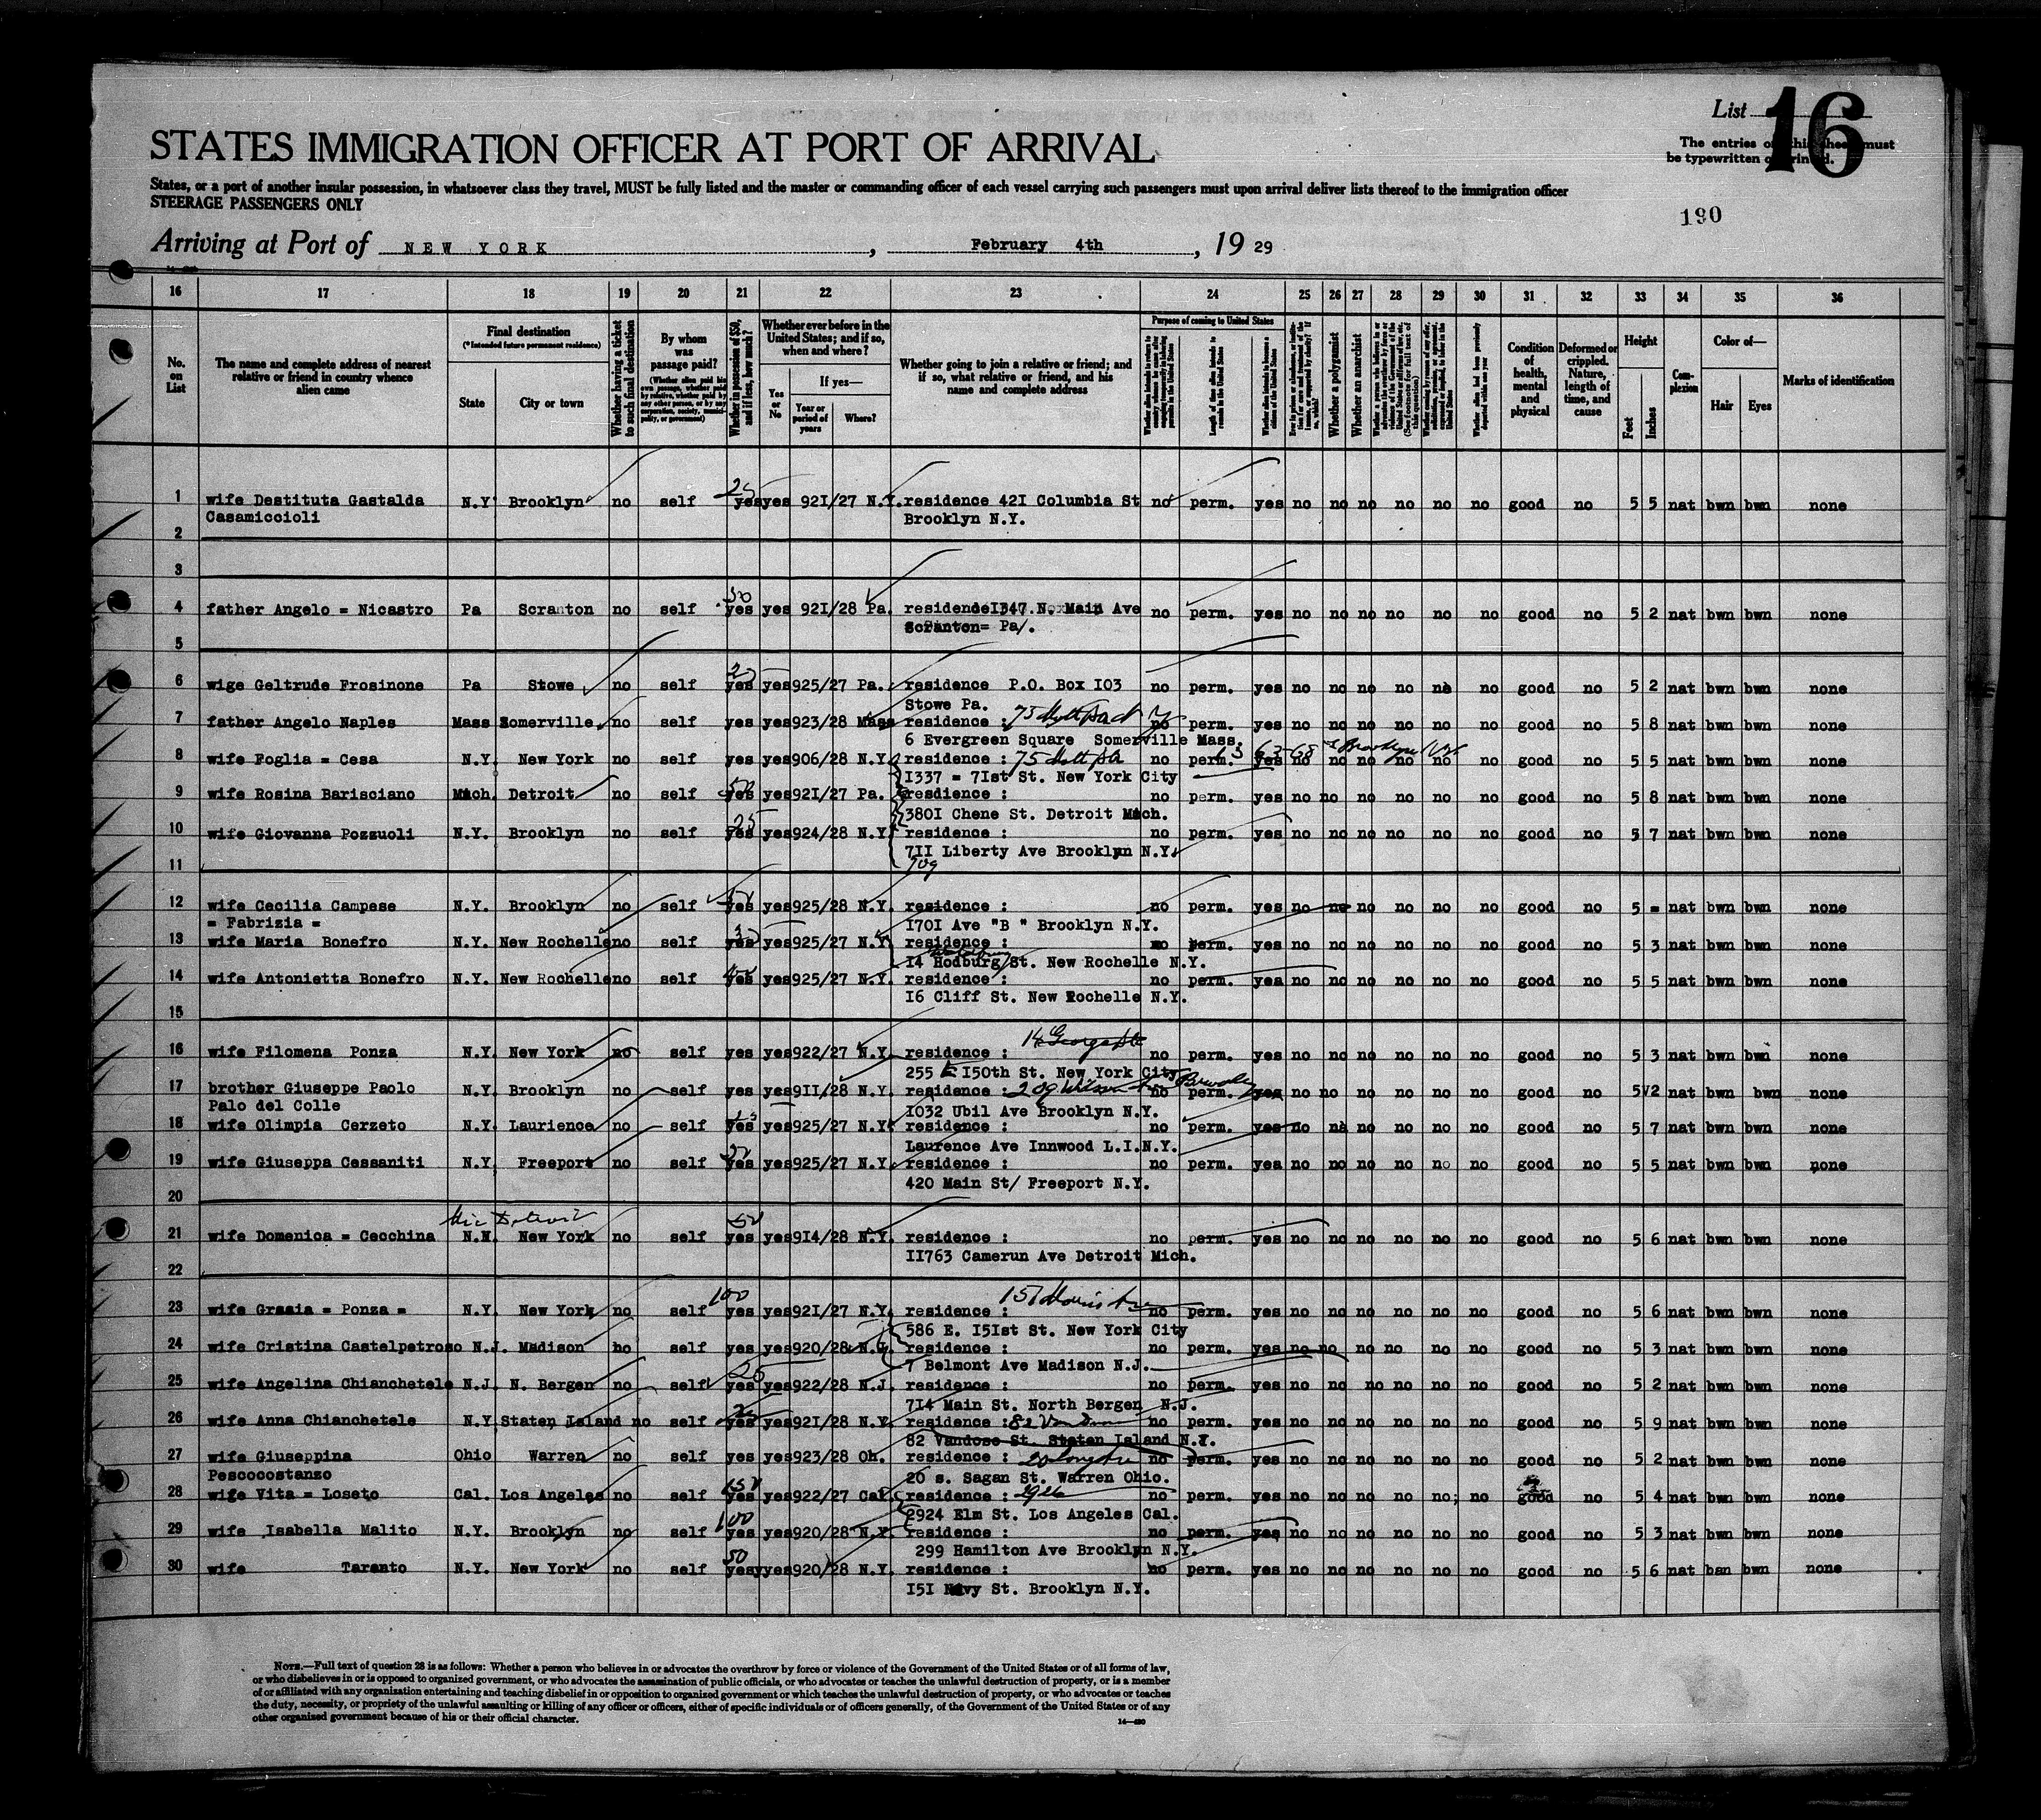 List 16
STATES IMMIGRATION OFFICER AT PORT OF ARRIVAL
The entries on this sheet must
be typewritten or printed.
States, or a port of another insular possession, in whatsoever class they travel, MUST be fully listed and the master or commanding officer of each vessel carrying such passengers must upon arrival deliver lists thereof to the immigration officer
STEERAGE PASSENGERS ONLY
190
Arriving at Port of NEW YORK, February 4th, 19 29
16 17 18 19 20 21 22 23 24 25 26 27 28 29 30 31 32 33 34 35 36
No. on List
The name and complete address of nearest relative or friend in country whence alien came
Final destination
(*Intended future permanent residence)
State
City or town
Whether having a ticket to such final destination
By whom was passage paid?
(Whether alien paid his own passage, whether paid by relative, whether paid by any other person, or by any corporation, society, municipality, or government)
Whether in possession of $50, and if less, how much?
Whether ever before in the United States; and if so, when and where?
Yes or No
If yes—
Year or period of years
Where?
Whether going to join a relative or friend; and if so, what relative or friend, and his name and complete address
Purpose of coming to United States
Length of time alien intends to remain in the United States
Whether alien intends to become a citizen of the United States
Whether a polygamist
Whether an anarchist
(See footnote for full text of this question)
Whether alien had been previously deported within one year
Condition of health, mental and physical
Deformed or crippled. Nature, length of time, and cause
Height
Feet
Inches
Complexion
Color of—
Hair
Eyes
Marks of identification
1 wife Destituta Gastalda N.Y. Brooklyn no self 25 yes yes 921/27 N.Y. residence 421 Columbia St no perm. yes no no no no no no good no 5 5 nat bwn bwn none
Casamiccioli Brooklyn N.Y.
2
3
4 father Angelo = Nicastro Pa Scranton no self 50 yes yes 921/28 Pa. residence 1347 N. Main Ave no perm. yes no no no no no no good no 5 2 nat bwn bwn none
Scranton= Pa/.
5
6 wige Geltrude Frosinone Pa Stowe no self yes yes 925/27 Pa. residence P.O. Box 103 no perm. yes no no no no no no good no 5 2 nat bwn bwn none
Stowe Pa.
7 father Angelo Naples Mass Somerville no self yes yes 923/28 Mass residence : no perm. yes no no no no no no good no 5 8 nat bwn bwn none
6 Evergreen Square Somerville Mass.
8 wife Foglia = Cesa N.Y. New York no self yes yes 906/28 N.Y. residence : no perm. yes no no no no no no good no 5 5 nat bwn bwn none
1337 = 71st St. New York City
9 wife Rosina Barisciano Mich. Detroit no self 50 yes yes 921/27 Pa. resdience : no perm. yes no no no no no no good no 5 8 nat bwn bwn none
3801 Chene St. Detroit Mich.
10 wife Giovanna Pozzuoli N.Y. Brooklyn no self 25 yes yes 924/28 N.Y. residence : no perm. yes no no no no no no good no 5 7 nat bwn bwn none
711 Liberty Ave Brooklyn N.Y.
709
11
12 wife Cecilia Campese N.Y. Brooklyn no self yes yes 925/28 N.Y. residence : no perm. yes no no no no no no good no 5 = nat bwn bwn none
= Fabrizia = 1701 Ave "B " Brooklyn N.Y.
13 wife Maria Bonefro N.Y. New Rochelle no self yes yes 925/27 N.Y. residence : no perm. yes no no no no no no good no 5 3 nat bwn bwn none
14 Hodburg St. New Rochelle N.Y.
14 wife Antonietta Bonefro N.Y. New Rochelle no self yes yes 925/27 N.Y. residence : no perm. yes no no no no no no good no 5 5 nat bwn bwn none
16 Cliff St. New Rochelle N.Y.
15
16 wife Filomena Ponza N.Y. New York no self yes yes 922/27 N.Y. residence : no perm. yes no no no no no no good no 5 3 nat bwn bwn none
255 E 150th St. New York City
17 brother Giuseppe Paolo N.Y. Brooklyn no self yes yes 911/28 N.Y. residence : no perm. yes no no no no no no good no 5 2 nat bwn bwn none
Palo del Colle 1032 Ubil Ave Brooklyn N.Y.
18 wife Olimpia Cerzeto N.Y. Laurience no self yes yes 925/27 N.Y. residence : no perm. yes no no no no no no good no 5 7 nat bwn bwn none
Laurence Ave Innwood L.I.N.Y.
19 wife Giuseppa Cessaniti N.Y. Freeport no self yes yes 925/27 N.Y. residence : no perm. yes no no no no no no good no 5 5 nat bwn bwn none
420 Main St/ Freeport N.Y.
20
Mic Detroit
21 wife Domenica = Cecchina N.N. New York no self 50 yes yes 914/28 N.Y. residence : no perm. yes no no no no no no good no 5 6 nat bwn bwn none
11763 Camerun Ave Detroit Mich.
22
23 wife Grazia = Ponza = N.Y. New York no self 100 yes yes 921/27 N.Y. residence : no perm. yes no no no no no no good no 5 6 nat bwn bwn none
586 E. 151st St. New York City
24 wife Cristina Castelpetroso N.J. Madison ho self yes yes 920/28 N.J. residence : no perm. yes no no no no no no good no 5 3 nat bwn bwn none
7 Belmont Ave Madison N.J.
25 wife Angelina Chianchetele N.J. N. Bergen no self 25 yes yes 922/28 N.J. residence : no perm. yes no no no no no no good no 5 2 nat bwn bwn none
714 Main St. North Bergen N.J.
26 wife Anna Chianchetele N.Y. Staten Island no self yes yes 921/28 N.Y. residence : no perm. yes no no no no no no good no 5 9 nat bwn bwn none
82 Vandose St. Staten Island N.Y.
27 wife Giuseppina Ohio Warren no self yes yes 923/28 Oh. residence : no perm. yes no no no no no no good no 5 2 nat bwn bwn none
Pescocostanzo 20 s. Sagan St. Warren Ohio.
28 wige Vita = Loseto Cal. Los Angeles no self 150 yes yes 922/27 Cal. residence : no perm. yes no no no no no; no good no 5 4 nat bwn bwn none
2924 Elm St. Los Angeles Cal.
29 wife Isabella Malito N.Y. Brooklyn no self 100 yes yes 920/28 N.Y. residence : no perm. yes no no no no no no good no 5 3 nat bwn bwn none
299 Hamilton Ave Brooklyn N.Y.
30 wife Taranto N.Y. New York no self 50 yes yes 920/28 N.Y. residence : no perm. yes no no no no no no good no 5 6 nat ban bwn none
151 Navy St. Brooklyn N.Y.
NOTE.—Full text of question 28 is as follows: Whether a person who believes in or advocates the overthrow by force or violence of the Government of the United States or of all forms of law,
or who disbelieves in or is opposed to organized government, or who advocates the assassination of public officials, or who advocates or teaches the unlawful destruction of property, or is a member
of or affiliated with any organization entertaining and teaching disbelief in or opposition to organized government or which teaches the unlawful destruction of property, or who advocates or teaches
the duty, necessity, or propriety of the unlawful assaulting or killing of any officer or officers, either of specific individuals or of officers generally, of the Government of the United States or of any
other organized government because of his or their official character.
14—430